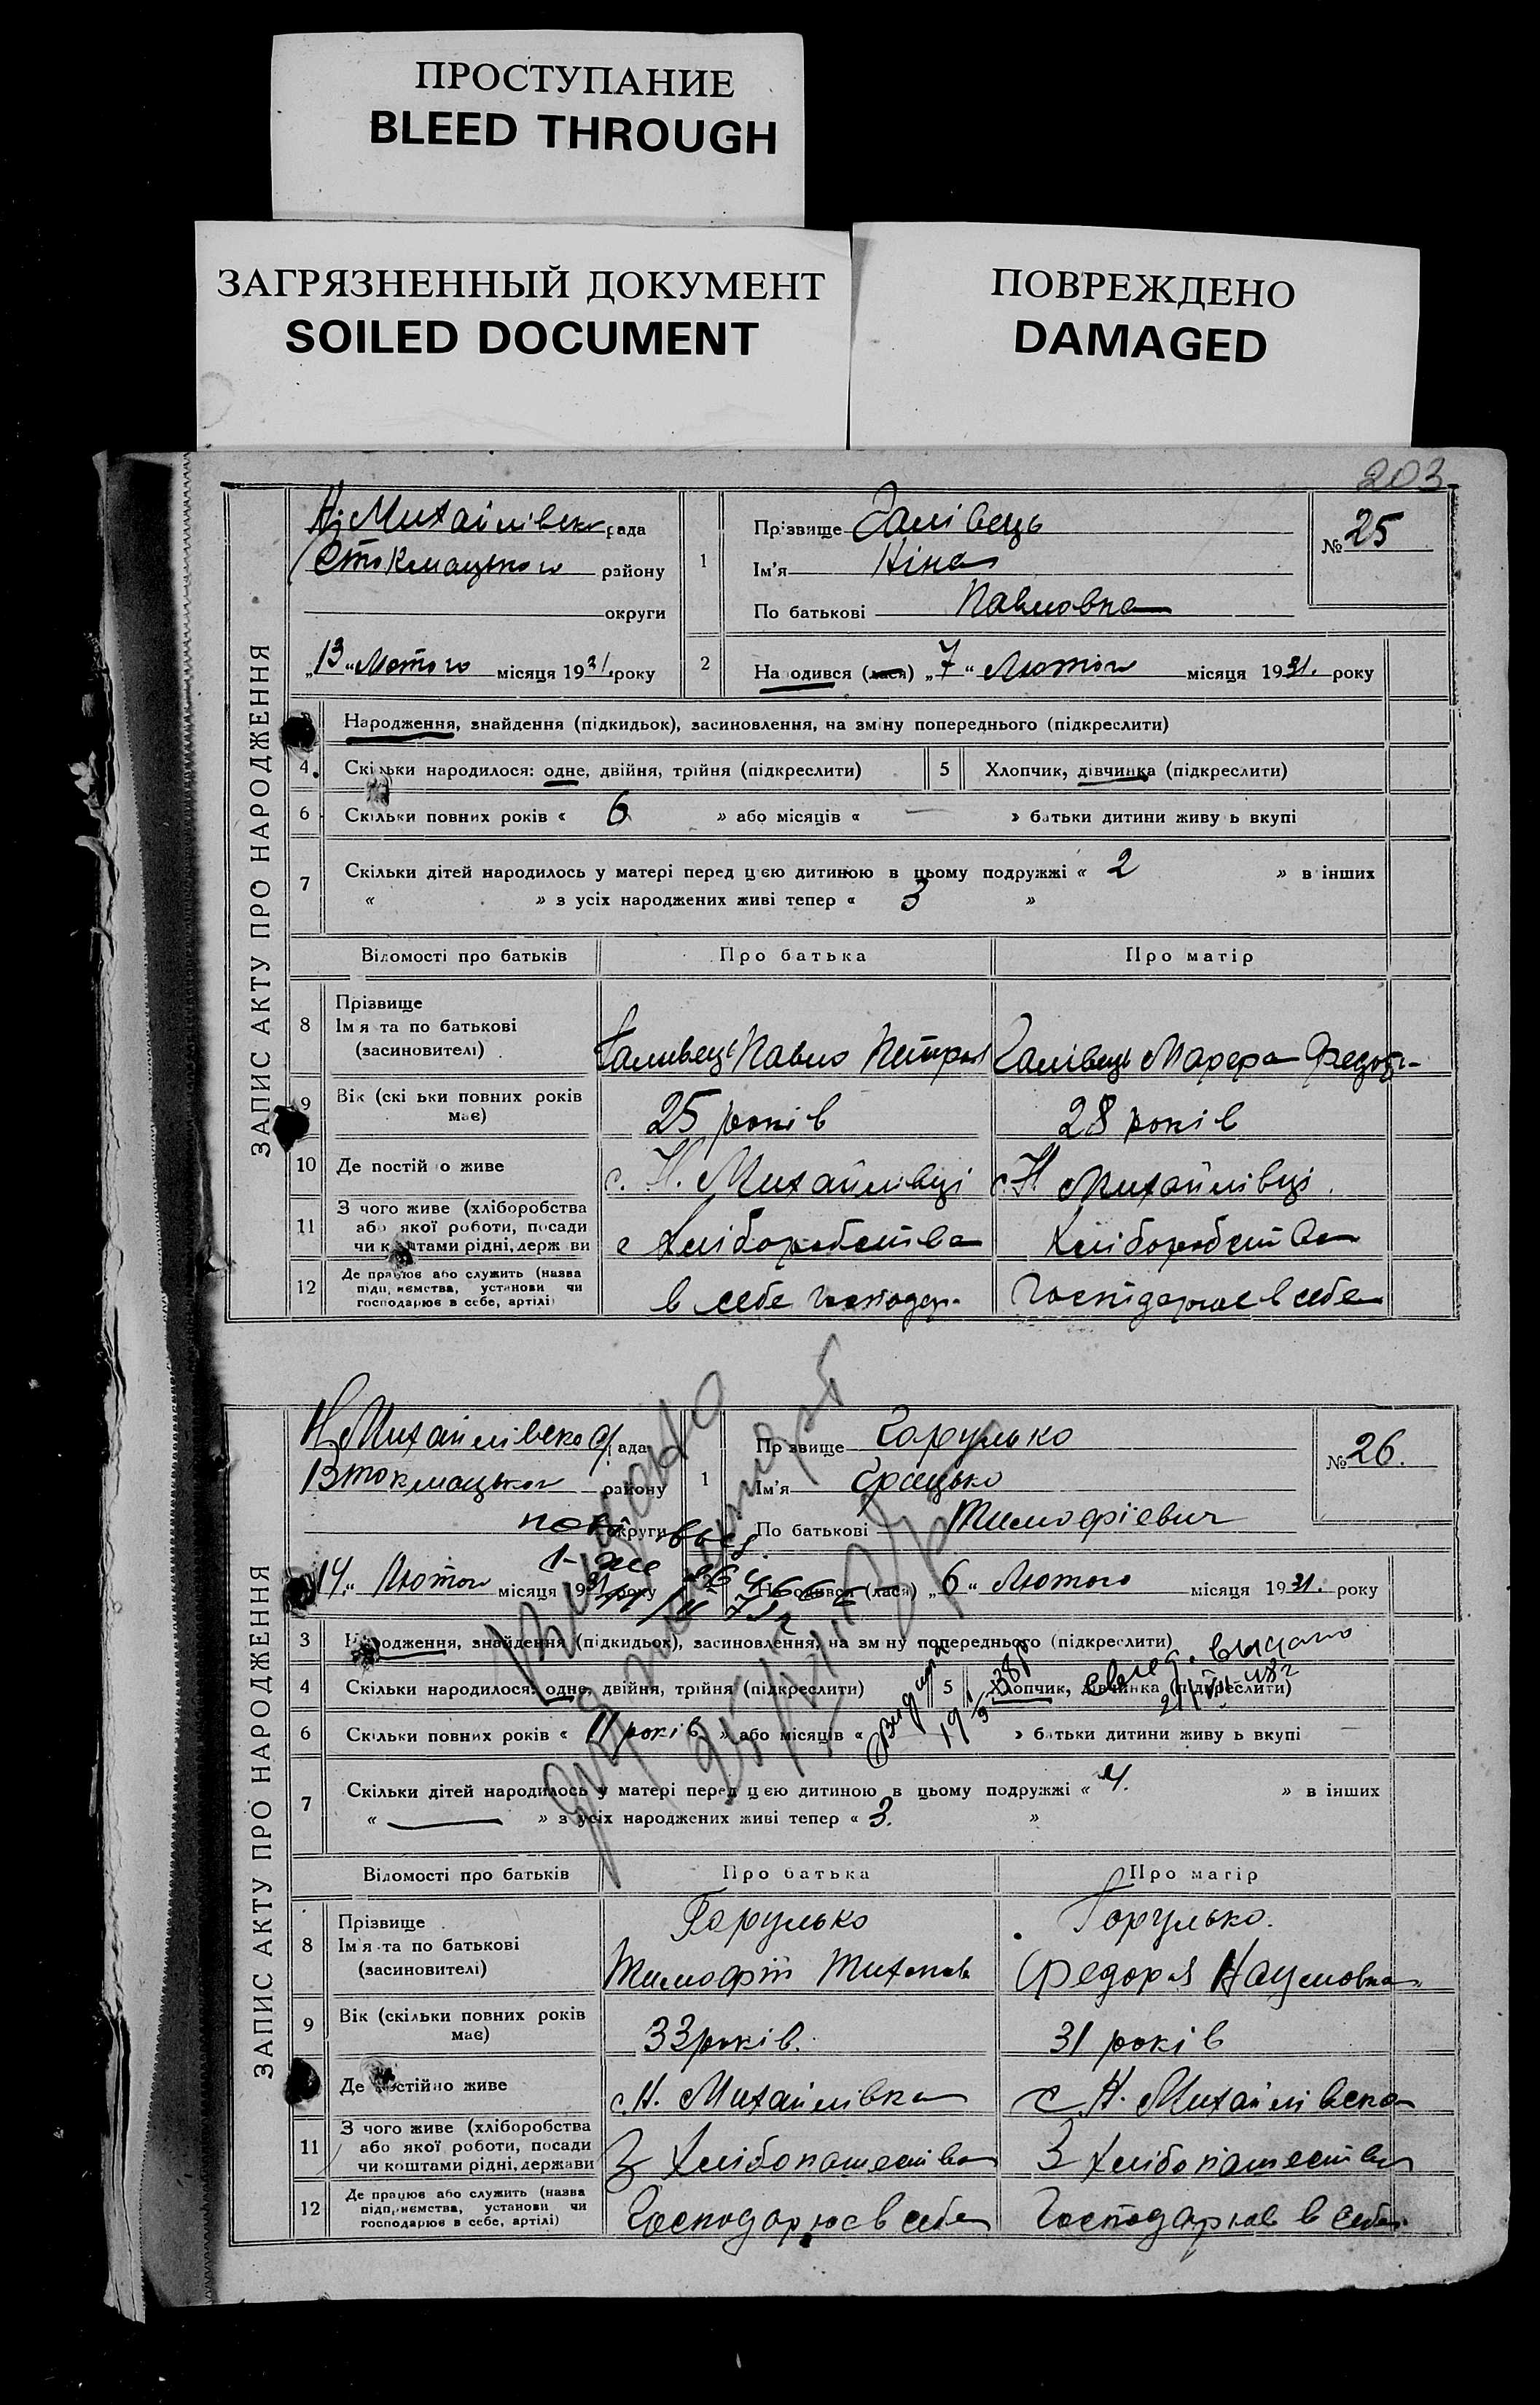 ПРОСТУПАНИЕ
BLEED THROUGH
ЗАГРЯЗНЕННЫЙ ДОКУМЕНТ
SOILED DOCUMENT
ПОВРЕЖДЕНО
DAMAGED
203
ЗАПИС АКТУ ПРО НАРОДЖЕННЯ
Н. Михайлівсько рада
району
округи
„13“ Лютого місяця 1931 року
1
Прізвище Галівець
Ім'я Ніна
По батькові Павловна
№ 25
2 На одився (лася) „7“ Лютого місяця 1931. року
Народження, знайдення (підкидьок), засиновлення, на зміну попереднього (підкреслити)
4 Скільки народилося: одне, двійня, трійня (підкреслити)
5 Хлопчик, дівчинка (підкреслити)
6 Скільки повних років « 6 » або місяців « — » батьки дитини живу ь вкупі
7 Скільки дітей народилось у матері перед цією дитиною в цьому подружжі « 2 » в інших
« » з усіх народжених живі тепер « 3 »
Відомості про батьків Про батька Про матір
8 Прізвище
Імя та по батькові
(засиновителі)
Галивець Павло
Галівець
9 Вік (скі ьки повних років
має)
25 років
28 років
10 Де постій о живе
с. Н. Михайлівці
с. Н. Михайлівці
11 З чого живе (хліборобства
або якої роботи, посади
чи коштами рідні, держ ви
з Хліборобства
Хліборобства
12 Де працює або служить (назва
підприємства, установи чи
господарює в себе, артілі)
в себе господар.
Господарює в себе
ЗАПИС АКТУ ПРО НАРОДЖЕННЯ
Н. Михайлівсько ада
Втокмацького району
округи
„14“ Лютого місяця 1931 року
1
Пр звище Горулько
Ім'я Грицько
По батькові Тимофієвич
№ 26.
Народився (лася) „6“ Лютого місяця 1931. року
3 Народження, знайдення (підкидьок), засиновлення, на зм ну попереднього (підкреслити)
4 Скільки народилося: одне, двійня, трійня (підкреслити)
5 Хлопчик, дівчинка (підкреслити)
свид. выдано
6 Скільки повних років « 11 років » або місяців « » батьки дитини живу ь вкупі
7 Скільки дітей народилось у матері перед цією дитиною в цьому подружжі « 4. » в інших
« — » з усіх народжених живі тепер « 3. »
Відомості про батьків Про батька Про матір
8 Прізвище
Імя та по батькові
(засиновителі)
Горулько
Тимофій
Горулько.
Федора Наумовна
9 Вік (скільки повних років
має)
33 років.
31 років
Де постійно живе
с. Н. Михайлівка
с Н. Михайлівска
11 З чого живе (хліборобства
або якої роботи, посади
чи коштами рідні, держави
З Хлібопашества
З хлібопашества
12 Де працює або служить (назва
підприємства, установи чи
господарює в себе, артілі)
Господарює в себе
Господарює в себе